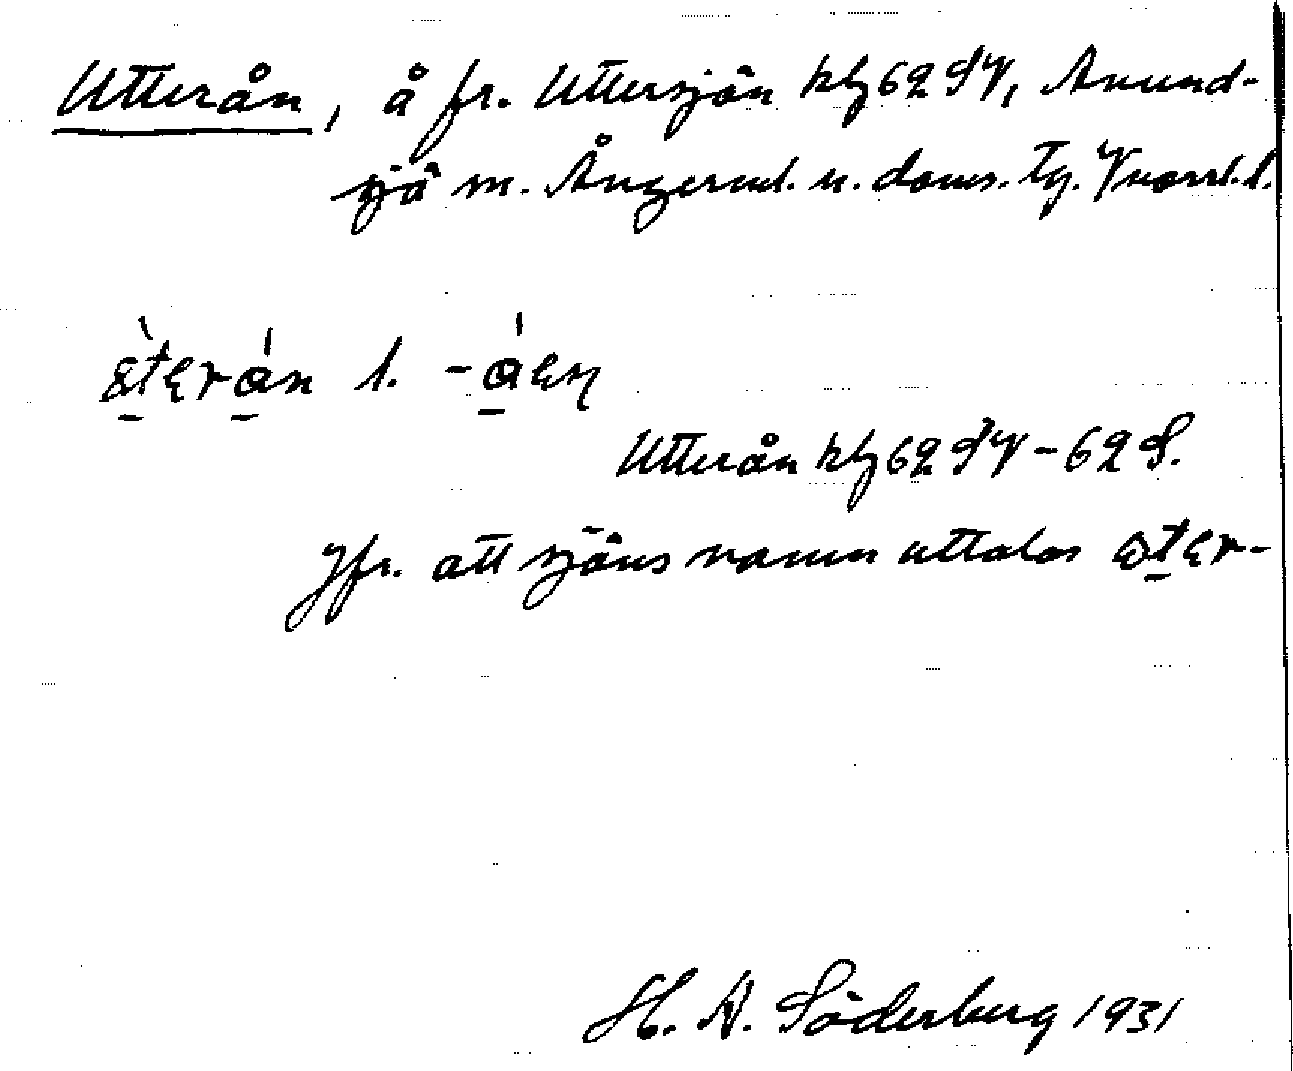 Utterån, å fr. Uttersjön kbl 62 SV, Anund-
sjö sn. Ångerml. n. doms. tg. Vnorrl. l.
återån l. -åen
Utterån kbl 62 SV - 62 S.
Jfr. att sjöns namn uttalas øter-
H. A. Söderberg 1931